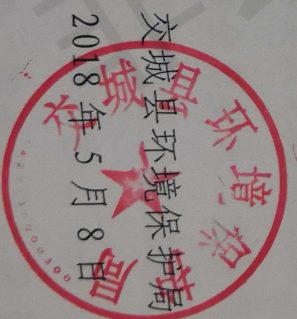 交城县环境保护局
2018年5月8日
交城县环境保护局